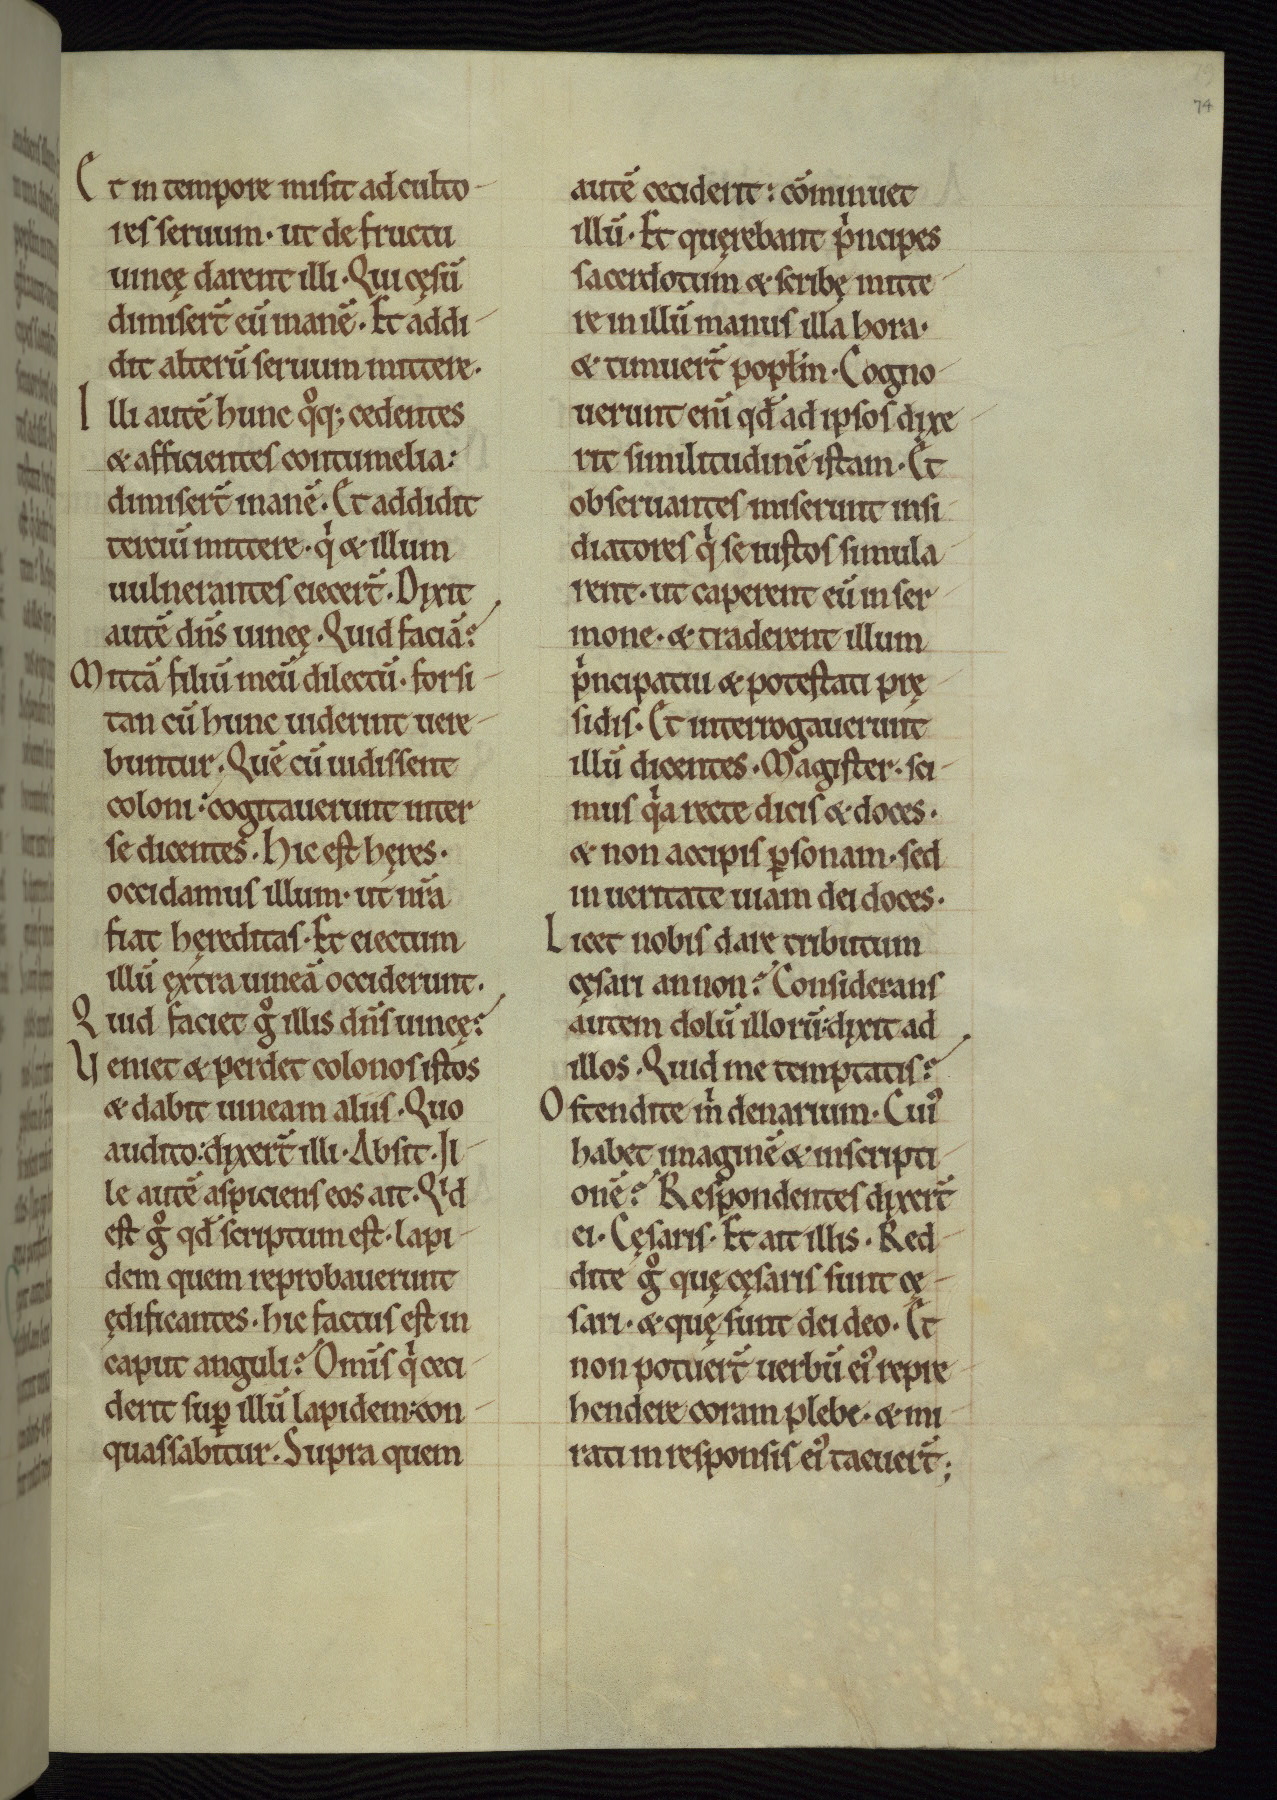 74
Et in tempore misit ad culto-
res seruum· ut de fructu
uineę darent illi· Qui cęsū
dimiser̄t eū inanē· Et addi-
dit alterū seruum mittere·
Illi autē hunc qͦq; cedentes
& afficientes contumelia:
dimiser̄t inanē· Et addidit
terciū mittere· qͥ & illum
uulnerantes eiecer̄t· Dixit
autē dn̄s uineę· Quid faciā?
Mittā filiū meū dilectū· forsi-
tan cū hunc uiderint uere-
buntur· Quē cū uidissent
coloni: cogitauerunt inter
se dicentes· Hic est hęres·
occidamus illum· ut nr̄a
fiat hęreditas· Et eiectum
illū extra uineā occiderunt·
Quid faciet gͦ illis dn̄s uineę?
Veniet & perdet colonos istos
& dabit uineam aliis· Quo
audito: dixer̄t illi· Absit· Il-
le autē aspiciens eos ait· Qͥd
est gͦ qđ scriptum est· lapi-
dem quem reprobauerunt
ędificantes· hic factus est in
caput anguli? Omīs qͥ ceci-
derit sup̲ illū lapidem: con-
quassabitur· Supra quem
autē ceciderit: cōminuet
illū· Et quęrebant pͥncipes
sacerdotum & scribę mitte-
re in illū manus illa hora·
& timuer̄t popl̄m· Cogno-
uerunt eni̅ qđ ad ipsos dixe-
rit similitudinē istam· Et
obseruantes miserunt insi-
diatores qͥ se iustos simula-
rent· ut caperent eū in ser-
mone· & traderent illum
pͥncipatui & potestati prę-
sidis· Et interrogauerunt
illū dicentes· Magister· sci-
mus qͥa recte dicis & doces·
& non accipis p̲sonam· sed
in ueritate uiam dei doces·
Licet nobis dare tributum
cęsari an non? Considerans
autem dolū illorū: dixit ad
illos· Quid me temptatis?
Ostendite m̄ denarium· Cuiꝰ
habet imaginē & inscripti-
onē? Respondentes dixer̄t
ei· Cęsaris· Et ait illis· Red-
dite gͦ quę cęsaris sunt cę-
sari· & quę sunt dei deo· Et
non potuer̄t uerbū eiꝰ repre-
hendere coram plebe· & mi-
rati in responsis eiꝰ tacuer̄t;